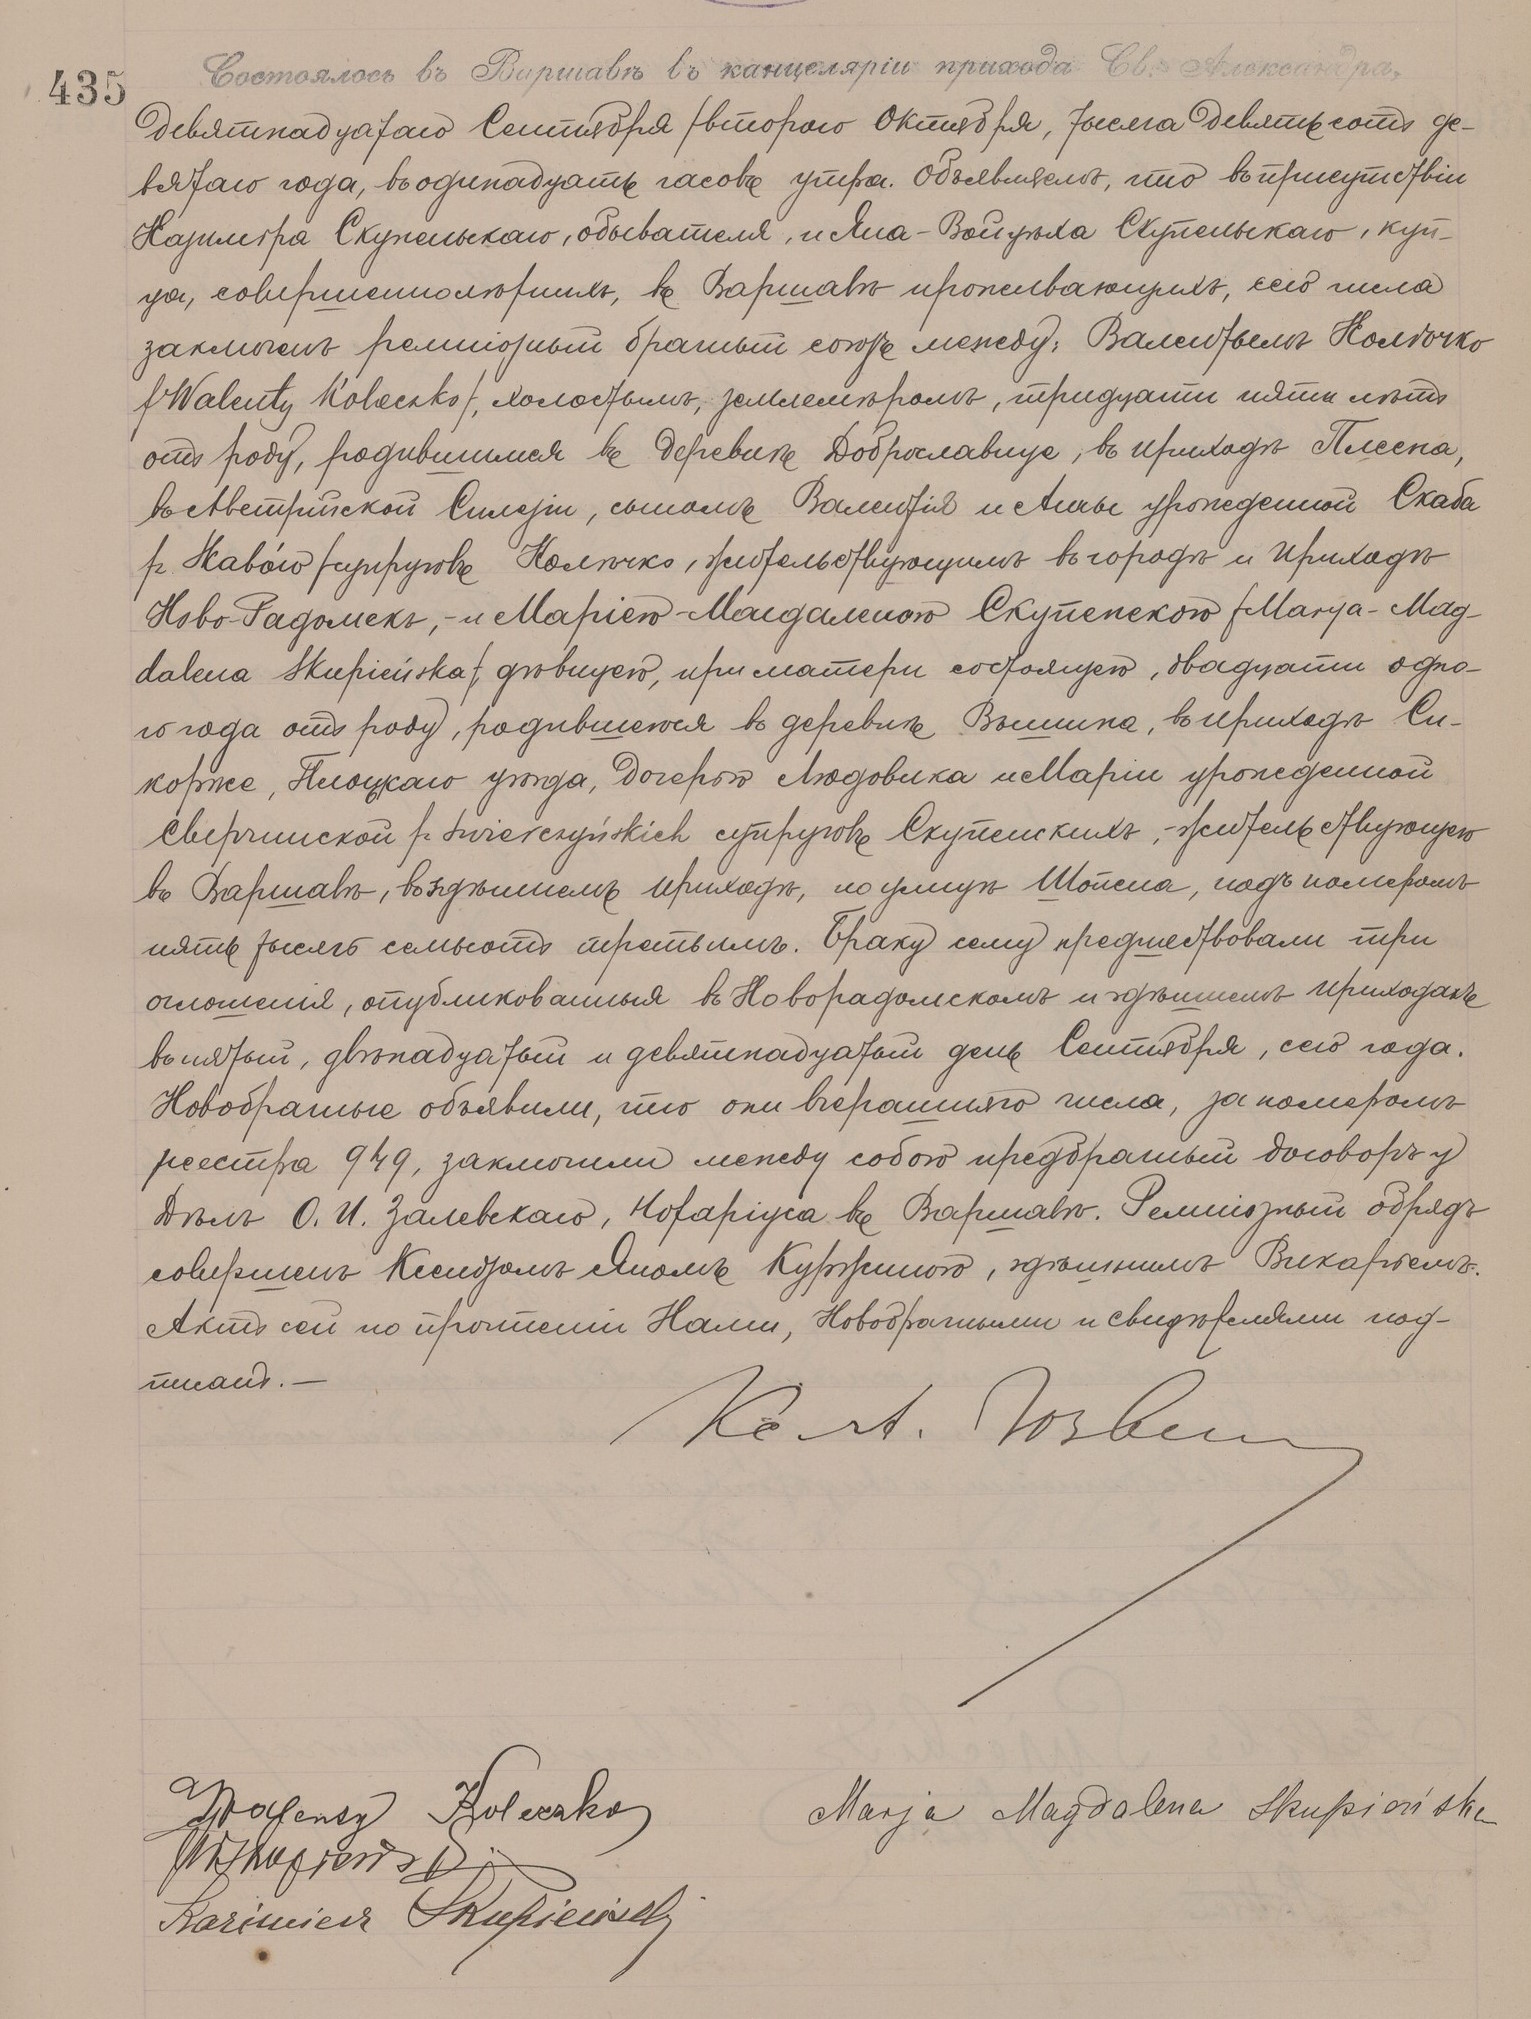 435
Состоялось въ Варшавѣ въ канцеляріи прихода Св. Александра,
девятнадцатаго Сентября /второго Октября, тысяча девятьсотъ де-
вятаго года, въ одинадцать часовъ утра. Объявляемъ, что въ присутствіи
Казиміра Скупеньскаго, обывателя, и Яна-Войцѣха Скупеньскаго, куп-
ца, совершеннолѣтнихъ, въ Варшавѣ проживающихъ, сего числа
заключенъ религіозный брачный союзъ между: Валентыемъ Колэчко
/Walenty Koleczko/, холостымъ, землемѣромъ, тридцати пяти лѣтъ
отъ роду, родившимся въ деревнѣ Доброславице, въ приходѣ Плесна,
въ Австрійской Силезіи, сыномъ Валентія и Анны урожденной Скаба
супруговъ Колэчко, жительствующимъ въ городѣ и приходѣ
Ново-Радомскъ,- и Маріею-Магдаленою Скупенскою /Marya-Mag-
dalena Skupieńska/, дѣвицею, при матери состоящею, двадцати одно-
го года отъ роду, родившеюся въ деревнѣ Вышина, въ приходѣ Си-
корже, Плоцкаго уѣзда, дочерью Людовика и Маріи урожденной
Сверчинской супруговъ Скупенскихъ,- жительствующею
въ Варшавѣ, въ здѣшнемъ приходѣ, по улицѣ Шопена, подъ номеромъ
пять тысячъ семьсотъ третьимъ. Браку сему предшествовали три
оглошенія, опубликованныя въ Новорадомскомъ и здѣшнемъ приходахъ
въ пятый, двѣнадцатый и девятнадцатый день Сентября, сего года.
Новобрачные объявили, что они вчерашняго числа, за номеромъ
реестра 949, заключили между собою предбрачный договоръ у
Дѣлъ О. И. Залевскаго, Нотаріуса въ Варшавѣ. Религіозный обрядъ
совершенъ Ксендзомъ Яномъ здѣшнимъ Викаріемъ.
Актъ сей по прочтеніи Нами, Новобрачными и свидѣтелями под-
писанъ.—
Walenty Koleczko
Marja Magdalena Skupieńska
Skupieński
Kazimierz Skupieński